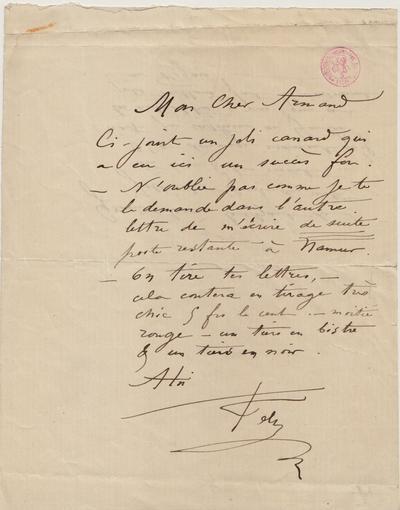 Mon Cher Armand
Ci-joint un joli canard qui
a eu ici un succès fou.
— N'oublie pas comme je te
le demande dans l'autre
lettre de m'écrire de suite
poste restante à Namur.
— On tire tes lettres, —
cela coutera en tirage très
chic 5 frs le cent. — moitié
rouge — un tiers en bistre
& un tiers en noir.
A toi